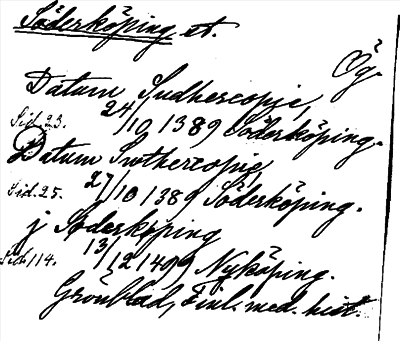 Söderköping, et.
Ög.
Datum Sudhercopie,
Sid. 23. 24/10 1389 Söderköping.
Datum Suthercopie,
Sid. 25. 27/10 1389 Söderköping.
j Söderköping
Sid. 114. 13/12 1409 Nyköping.
Grönblad, Finl. med. hist.